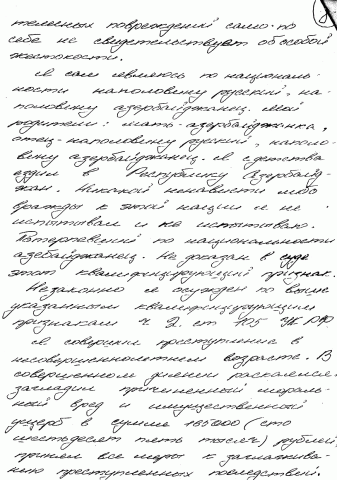 телесных повреждений само по
себе не свидетельствует об особой
жестокости.
Я сам являюсь по националь-
ности наполовину русский, на-
половину азербайджанец. Мои
родители: мать-азербайджанка,
отец-наполовину русский, наполо-
вину азербайджанец. Я с детства
ездил в Республику Азербайд-
жан. Никакой ненависти либо
вражды к этой нации я не
испытывал и не испытываю.
Потерпевший по национальности
азебайджанец. Не доказан в суде
этот квалифицирующий признак.
Незаконно я осужден по выше
указанным квалифицирующим
признакам ч. 2. ст 105 УК РФ
Я совершил преступление в
несовершеннолетнем возрасте. В
совершенном деянии раскаялся.
загладил причиненный мораль-
ный вред и имущественный
ущерб в сумме 165000 (сто
шестьдесят пять тысяч) рублей
принял все меры к заглажива-
нию преступленных последствий.